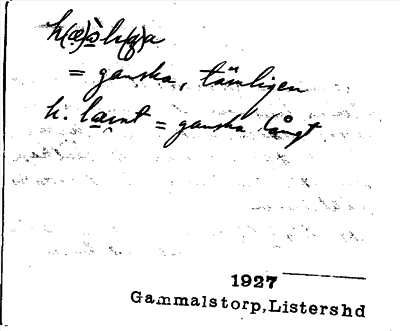 h(æ)slı(g)a
= ganska, tämligen
h. laınt = ganska långt
1927
Gammalstorp,Listershd